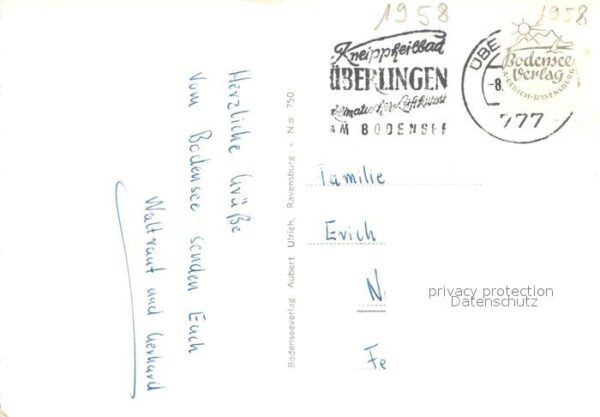 1958
1958
Kneippheilbad
ÜBERLINGEN
klimatischer Luftkurort
AM BODENSEE
ÜBE
-8.
777
Bodensee
Verlag
A. ULRICH-RAVENSBURG
Herzliche Grüße
vom Bodensee senden Euch
Waltraut und Gerhard
Bodenseeverlag Aubert Ulrich, Ravensburg - No 750
Familie
Erich
N.
Fe
privacy protection
Datenschutz